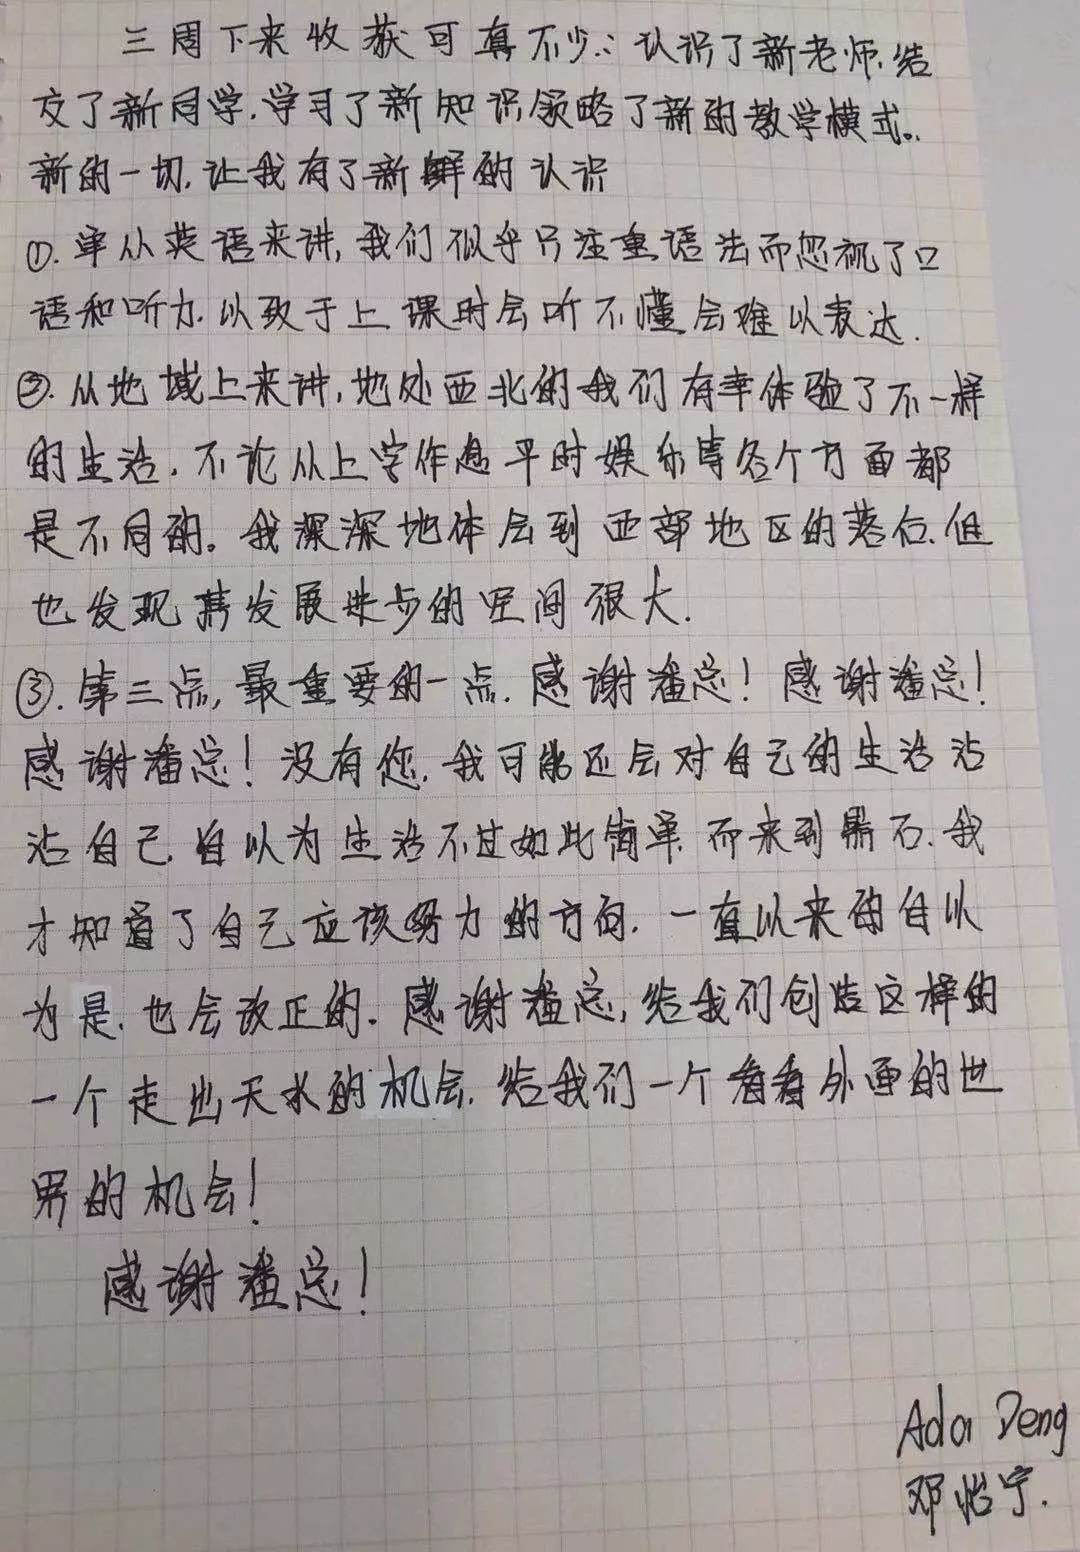 三周下来收获可真不少:认识了新老师.结
交了新同学.学习了新知识领略了新的教学模式。
新的一切.让我有了新鲜的认识
①.单从英语来讲,我们似乎只注重语法而忽视了口
语和听力.以致于上课时会听不懂会难以表达.
②.从地域上来讲,地处西北的我们有幸体验了不一样
的生活.不论从上学作息平时娱乐等各个方面都
是不同的。我深深地体会到西部地区的落后.但
也发现其发展进步的空间很大.
③.第三点,最重要的一点.感谢潘总!感谢潘总!
感谢潘总!没有您.我可能还会对自己的生活沾
沾自己.自以为生活不过如此简单.而来到鼎石.我
才知道了自己应该努力的方向.一直以来的自以
为是.也会改正的.感谢潘总,给我们创造这样的
一个走出天水的机会.给我们一个看看外面的世
界的机会!
感谢潘总!
Ada Deng
邓怡宁.